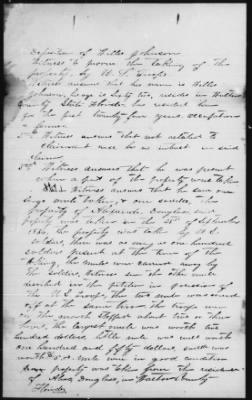 Deposition of Willis Johnson
Witness to prove the taking of the
property, by U. S. Troops
Witness answers that his name is Willis
Johnson, his age is Sixty two, resides in Walton
County State Florida, has resided here
for the past twenty four years, occupation a
farmer
Witness answers that not related to
claimant nor has he an interest in said
Claim
Witness answers that he was present
when a part of the property was taken
Witness answers that he saw one
large mule taken, & one smaller, the
property of
property was taken on the of September
1864, the property was taken by U.S.
soldiers, there was as many as one hundred
soldiers present at the time of the
taking, the mules was carried away by
the soldiers. Witness saw the the mules
described in the petition in possession of
the U S Troops, the two mules was carried
off at the same time the troops were
on the march Stopped about two or three
hours, the largest mule was worth two
hundred dollars, little mule was well worth
one hundred and fifty dollars,
mule was in good condition
property was taken from the residence
of Douglass, in Walton County
Florida